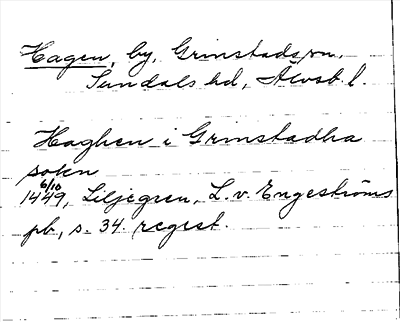 Hagen, by, Grinstads sn.
Sundals hd, Älvsb. l.
Haghen i Grinstadha
sokn
6/10
1449, Liljegren, L. v. Engeströms
pb, s. 34. regest.